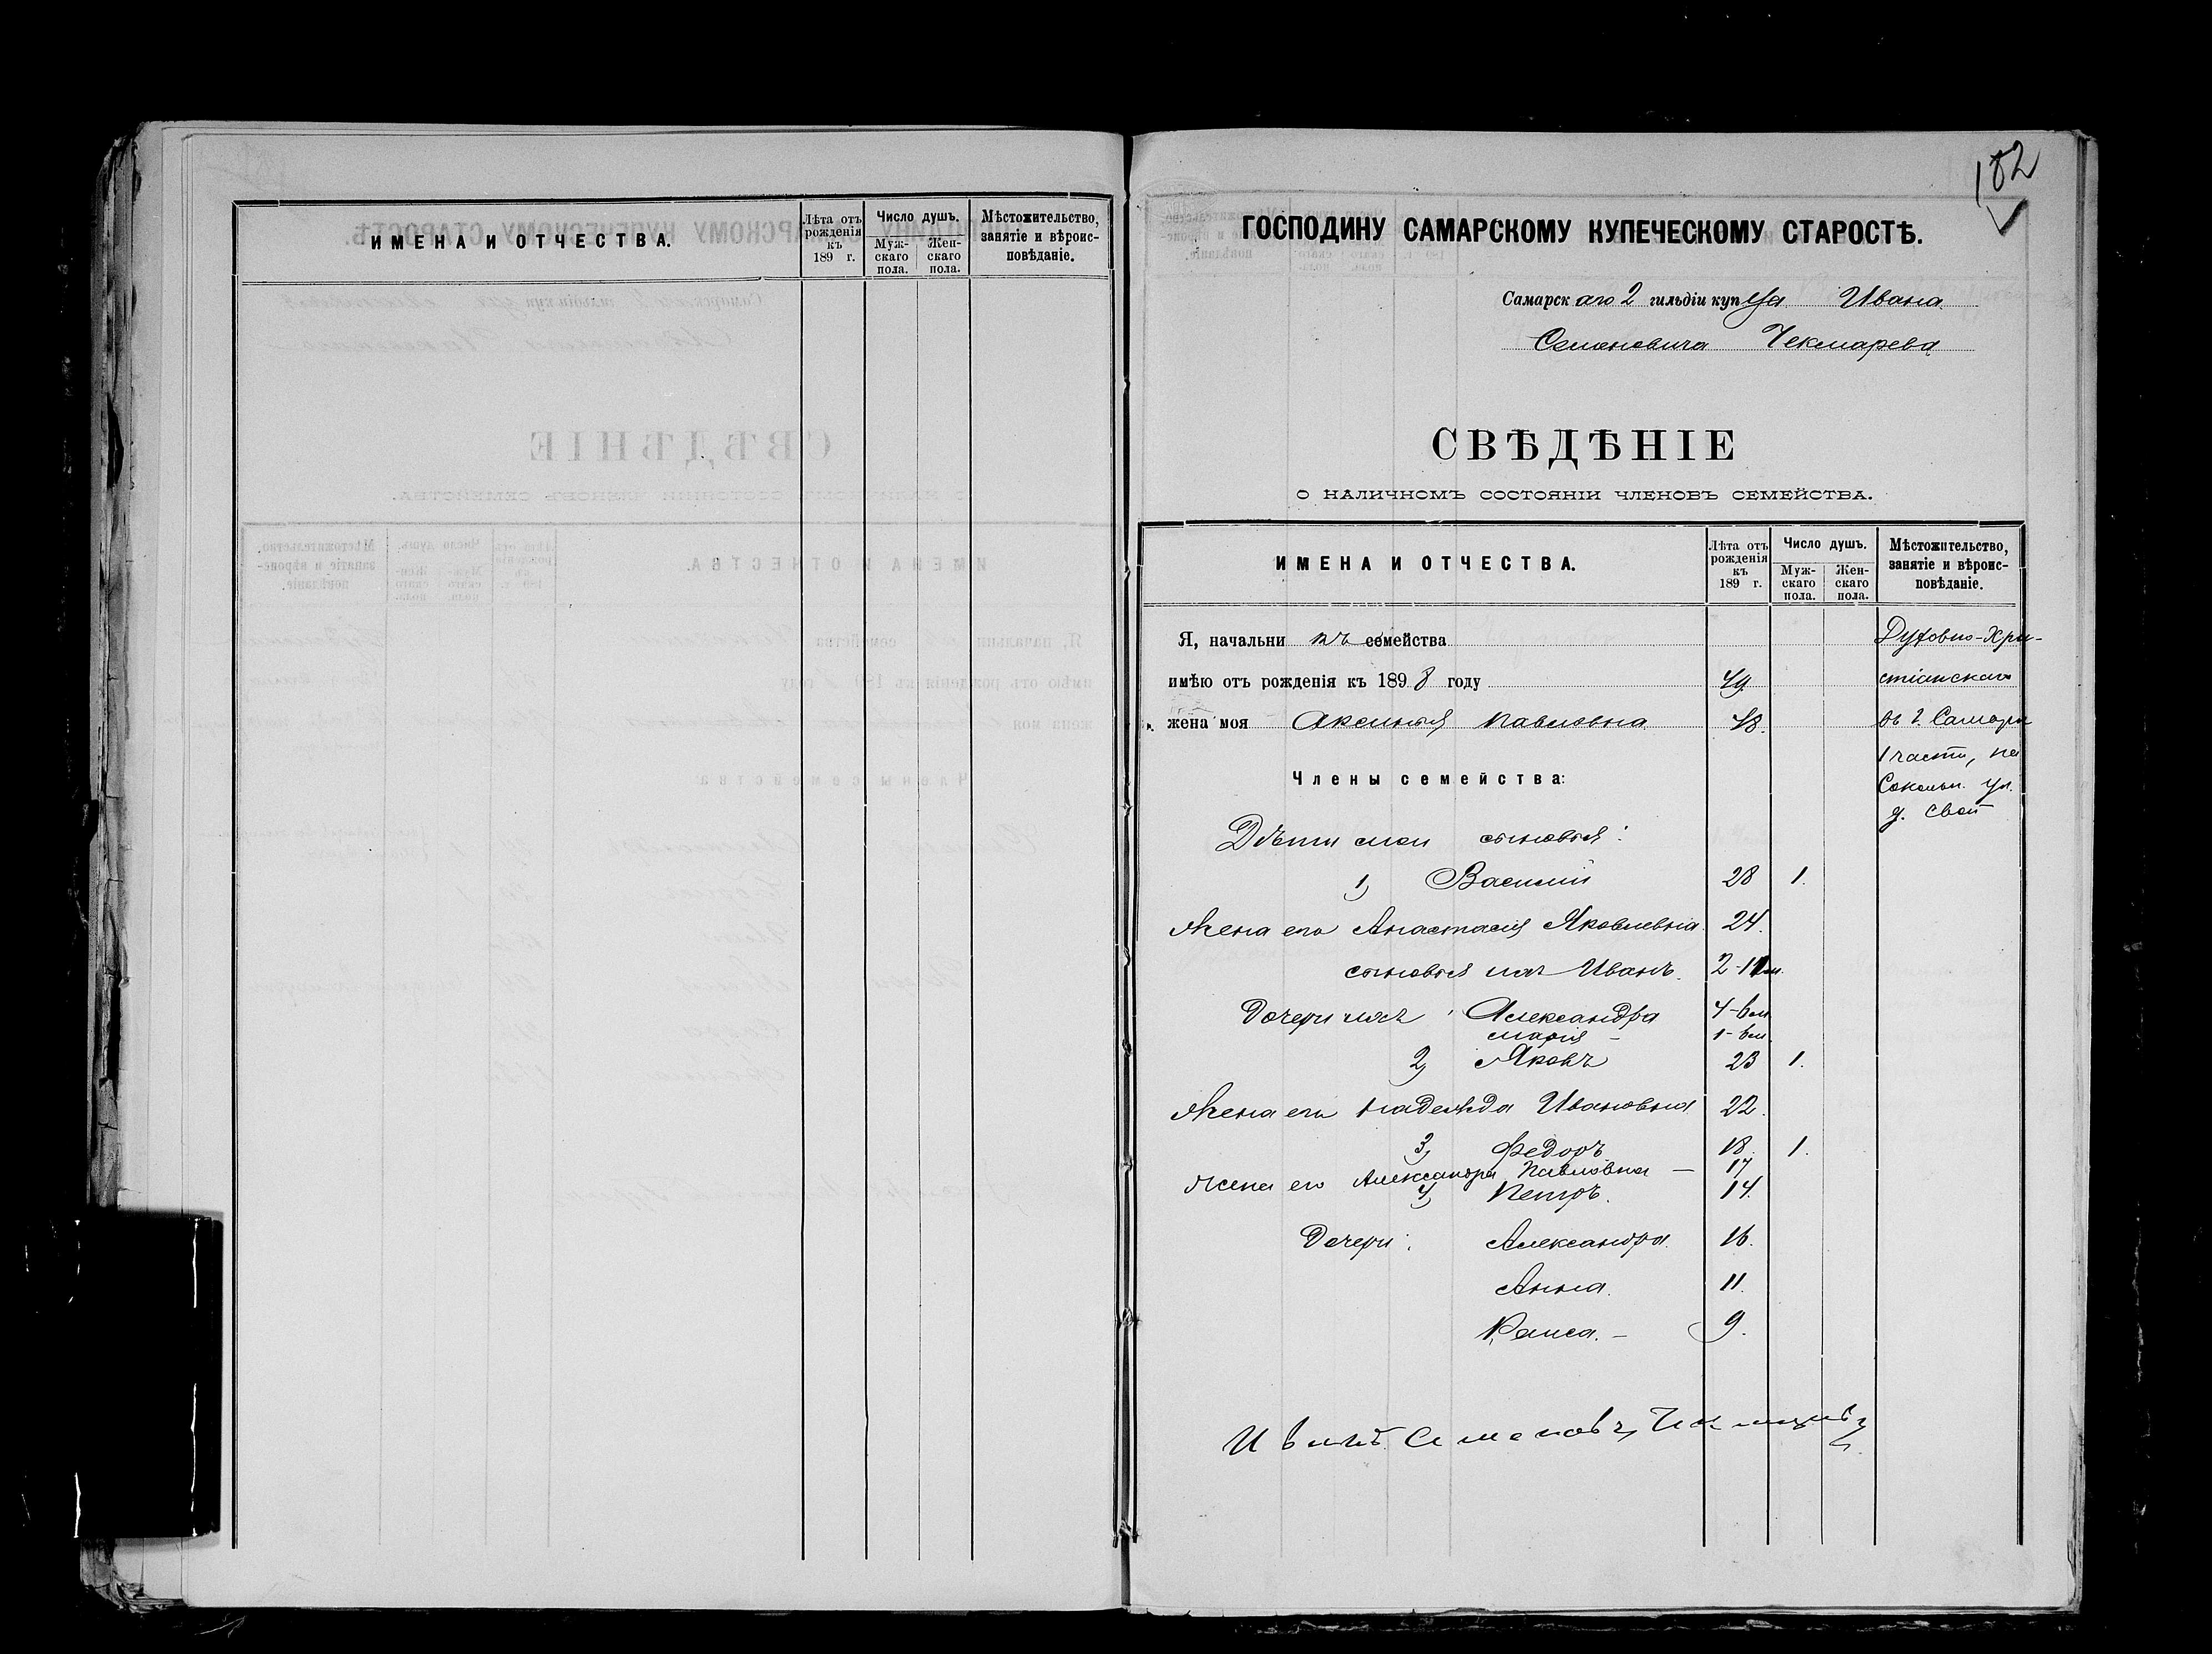 ИМЕНА И ОТЧЕСТВА.
Лѣта отъ рожденія къ 189 г.
Число душъ.
Мужскаго пола.
Женскаго пола.
Мѣстожительство, занятіе и вѣроисповѣданіе.
182
ГОСПОДИНУ САМАРСКОМУ КУПЕЧЕСКОМУ СТАРОСТѢ.
Самарскаго 2 гильдіи купца Ивана
Семеновича Чекмарева
СВѢДѢНІЕ
О НАЛИЧНОМЪ СОСТОЯНІИ ЧЛЕНОВЪ СЕМЕЙСТВА.
ИМЕНА И ОТЧЕСТВА.
Лѣта отъ рожденія къ 189 г.
Число душъ.
Мужскаго пола.
Женскаго пола.
Мѣстожительство, занятіе и вѣроисповѣданіе.
Я, начальникъ семейства Духовно-Хри-
имѣю отъ рожденія къ 1898 году 49 стіанскаго
жена моя Аксинья Павловна 48. въ г. Самарѣ
1 части, на
Члены семейства: Сокольн. ул.
д. свой
Дѣти мои сыновья:
1) Василий 28 1.
Жена его Анастасия Яковлевна 24.
сыновья их Иванъ. 2-11 м.
Дочери ихъ: Александра 4-6 м
Мария - 1-6 м.
2) Яковъ 23 1.
Жена его Надежда Ивановна 22.
3) Федоръ 18. 1.
Жена его Александра Павловна — 17
4) Петръ. 14.
Дочери: Александра. 16.
Анна. 11.
Раиса. - 9.
Иванъ Семеновъ